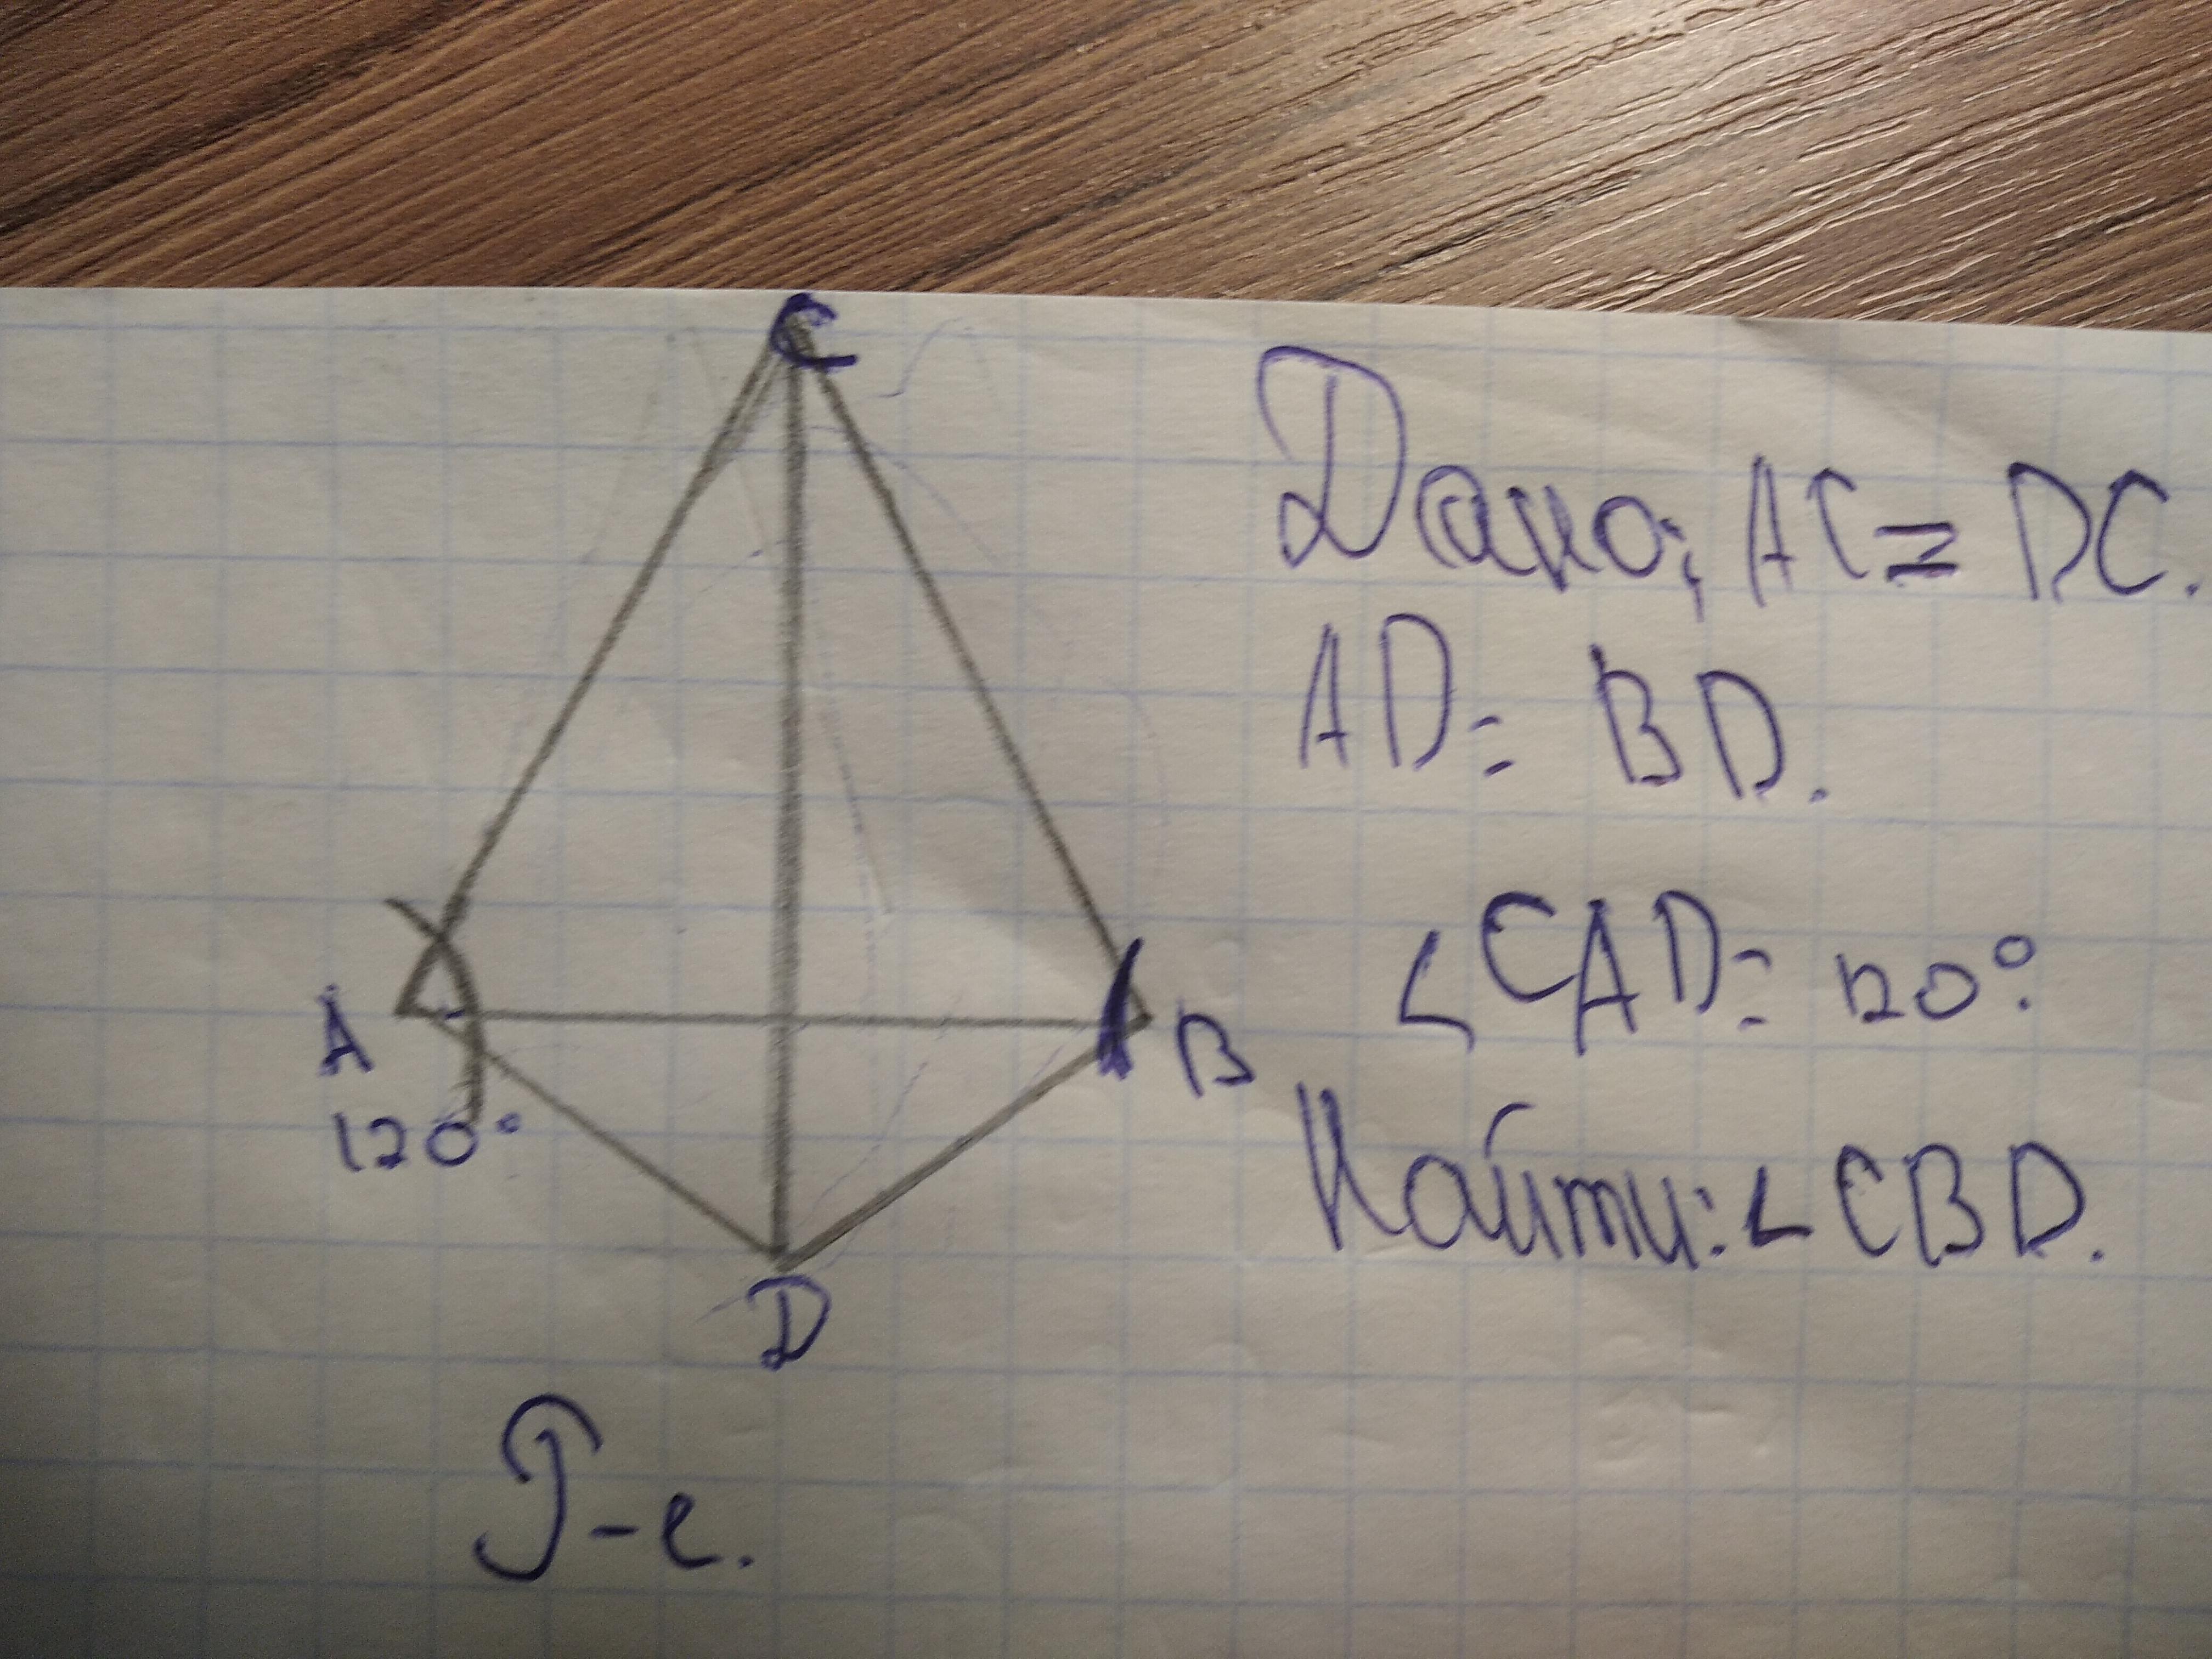 C
Дано; AC = DC.
AD = BD.
∠CAD = 120°.
A
B
120°
Найти: ∠CBD.
D
Р-е.